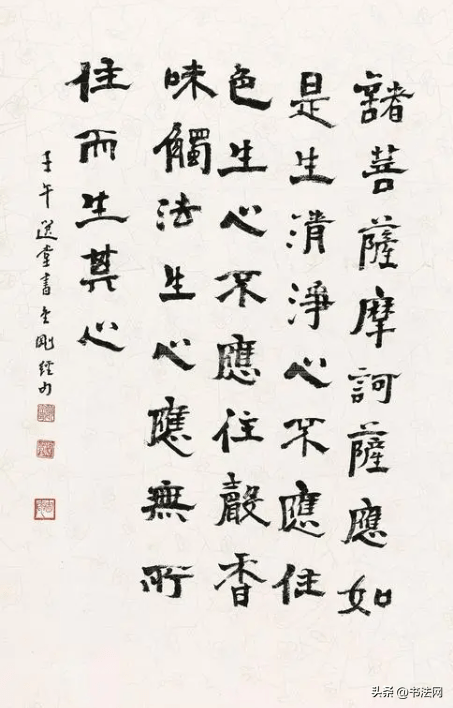 諸菩薩摩訶薩應如
是生清淨心不應住
色生心不應住聲香
味觸法生心應無所
住而生其心
壬午選堂書金剛經句
头条@书法网